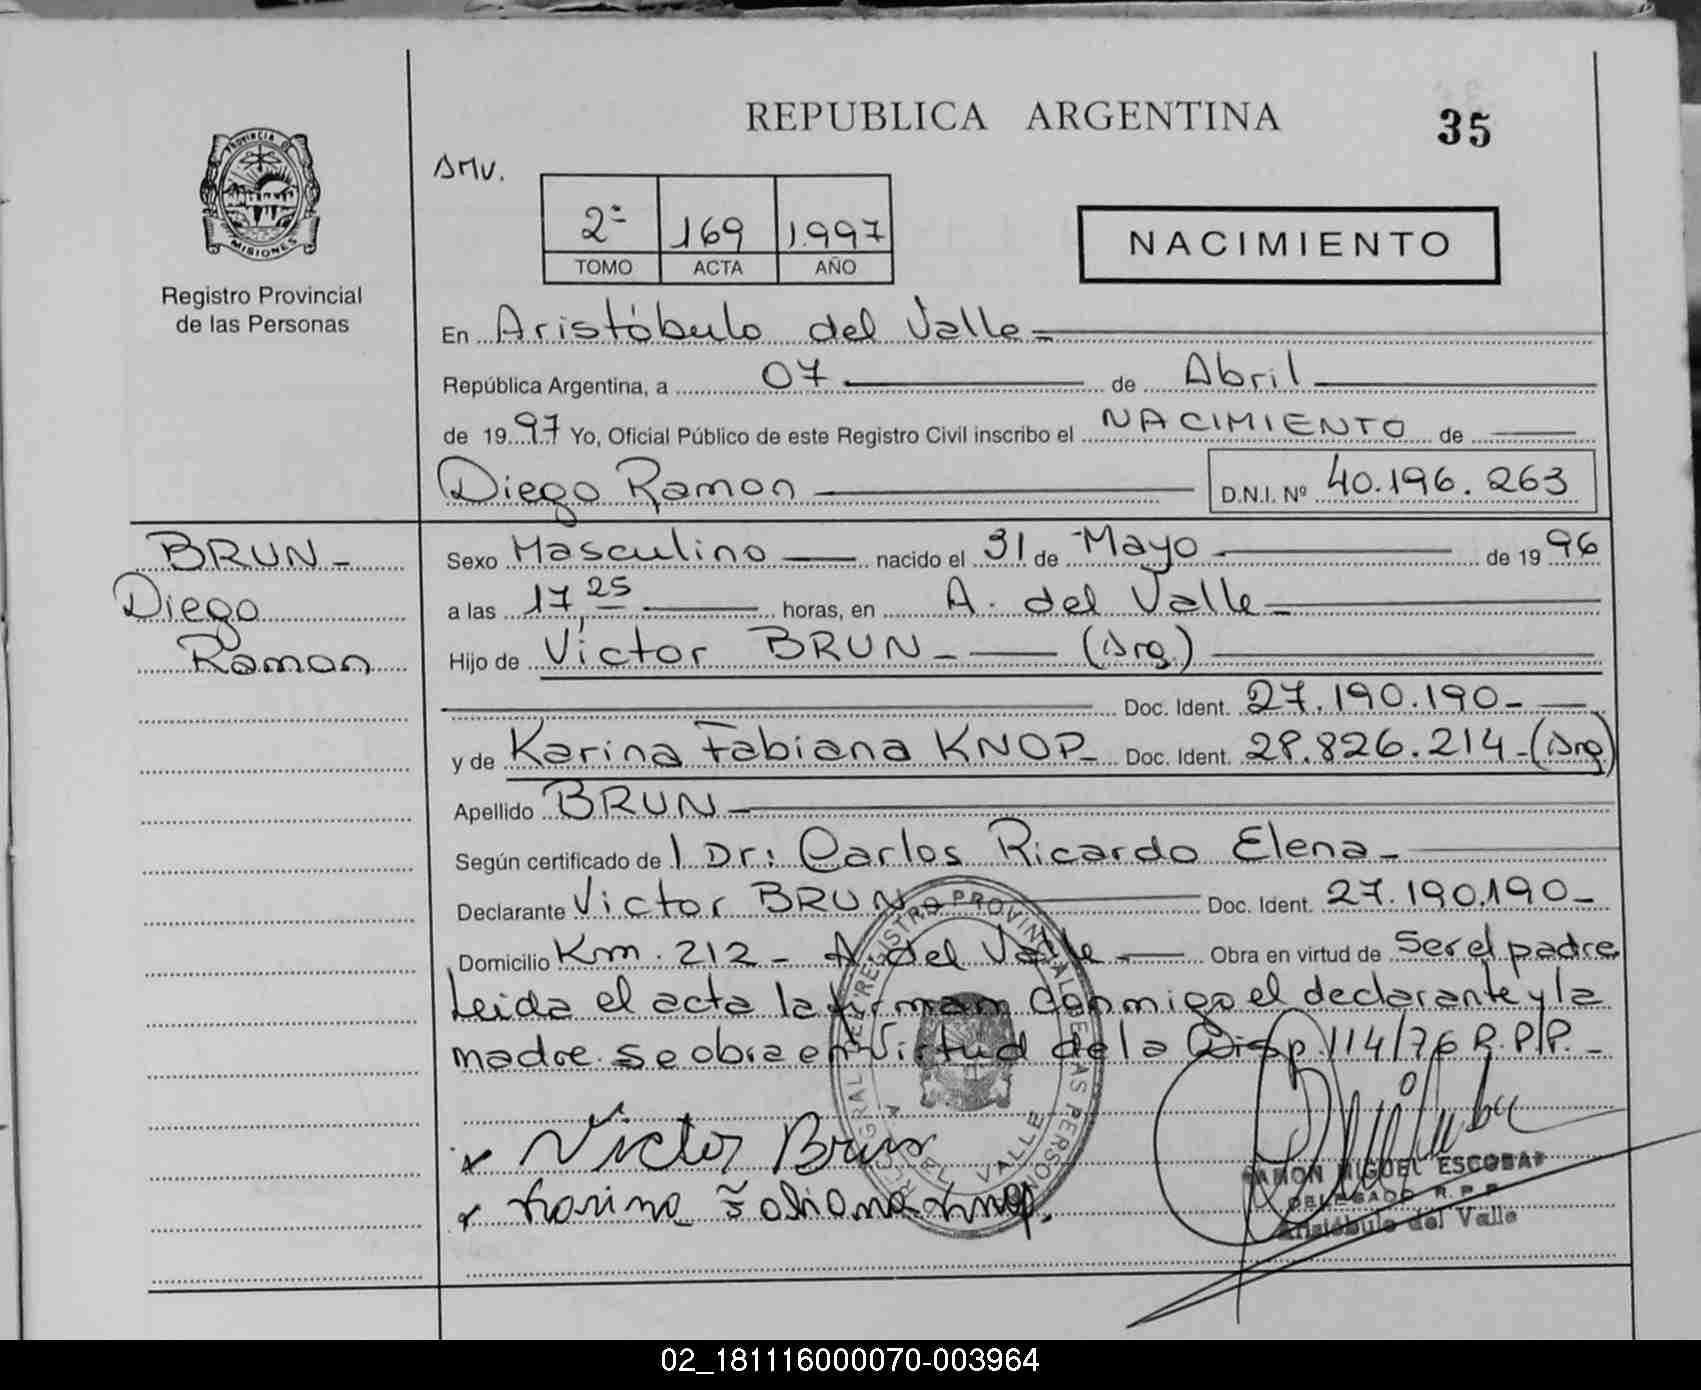 REPUBLICA ARGENTINA
35
PROVINCIA DE
MISIONES
Registro Provincial
de las Personas
SMV.
2ª 169 1.997
TOMO ACTA AÑO
NACIMIENTO
En Aristóbulo del Valle
República Argentina, a 07 de Abril
de 1997 Yo, Oficial Público de este Registro Civil inscribo el NACIMIENTO de
Diego Ramon D.N.I. Nº 40.196.263
BRUN
Diego
Ramon
Sexo Masculino nacido el 31 de Mayo de 1996
a las 17 25 horas, en A. del Valle
Hijo de Victor BRUN (Arg.)
Doc. Ident. 27.190.190
y de Karina Fabiana KNOP Doc. Ident. 28.826.214 (Arg)
Apellido BRUN
Según certificado de l Dr: Carlos Ricardo Elena
Declarante Victor BRUN Doc. Ident. 27.190.190
Domicilio Km. 212 - A. del Valle Obra en virtud de Ser el padre
Leida el acta la firman Conmigo el declarante y la
madre. se obra en Virtud de la Disp 114/76 R.P.P.
REGISTRO PROVINCIAL DE LAS PERSONAS
A DEL VALLE
x Victor Brun
x Karina Fabiana Knop.
RAMON MIGUEL ESCOBAR
DELEGADO R.P.P.
Aristóbulo del Valle
02_181116000070-003964